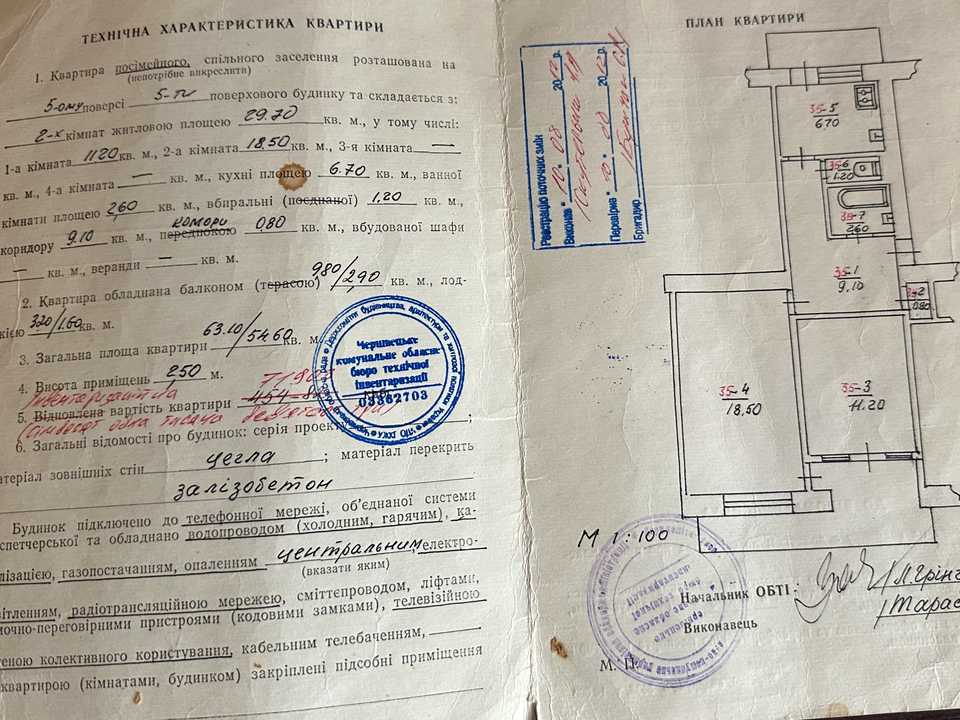 ТЕХНІЧНА ХАРАКТЕРИСТИКА КВАРТИРИ
1. Квартира посімейного, спільного заселення розташована на
(непотрібне викреслити)
5-ому поверсі 5-ти поверхового будинку та складається з:
2-х кімнат житловою площею 29.70 кв. м., у тому числі:
1-а кімната 11.20 кв. м., 2-а кімната 18.50 кв. м., 3-я кімната —
кв. м., 4-а кімната — кв. м., кухні площею 6.70 кв. м., ванної
кімнати площею 2,60 кв. м., вбиральні (поєднаної) 1.20 кв. м.,
комори
коридору 9.10 кв. м., передпокою 0,80 кв. м., вбудованої шафи
— кв. м., веранди — кв. м.
2. Квартира обладнана балконом (терасою) 9,80/2,90 кв. м., лод-
жією 3.20/1.60 кв. м.
3. Загальна площа квартири 63.10/54.60 кв. м.
4. Висота приміщень 2.50 м.
Інвентаризаційна 71902
5. Відновлена вартість квартири
(сімдесят одна тисяча
6. Загальні відомості про будинок: серія проекту ;
матеріал зовнішніх стін цегла ; матеріал перекрить
залізобетон
Будинок підключено до телефонної мережі, об'єднаної системи
диспетчерської та обладнано водопроводом (холодним, гарячим), ка-
налізацією, газопостачанням, опаленням центральним, електро-
(вказати яким)
освітленням, радіотрансляційною мережею, сміттепроводом, ліфтами,
замочно-переговірними пристроями (кодовими замками), телевізійною
антеною колективного користування, кабельним телебаченням,
квартирою (кімнатами, будинком) закріплені підсобні приміщення
Чернівецьке
комунальне обласне
бюро технічної
інвентаризації
03362703
ПЛАН КВАРТИРИ
Реєстрацію поточних змін
Виконав "10" 08 2012 р.
Перевірив "10" 08 2012 р.
Бригадир
35-5
6.70
35-6
1.20
35-7
2.60
35-1
9.10
35-2
0.80
35-4
18.50
35-3
11.20
М 1:100
Начальник ОБТІ:
Виконавець
М. П.